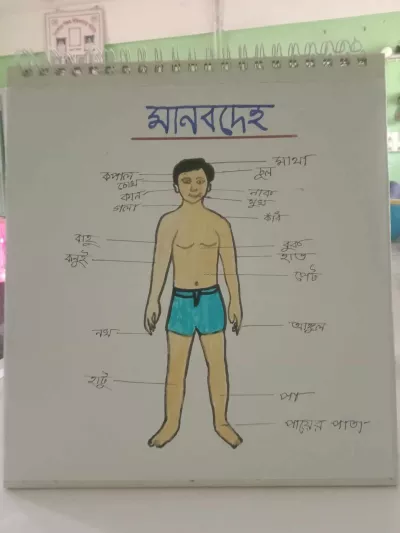 মানবদেহ
মাথা
কপাল
চুল
চোখ
কান
নাক
মুখ
গলা
কাঁধ
বাহু
বুক
কনুই
হাত
পেট
নখ
আঙ্গুল
হাটু
পা
পায়ের পাতা